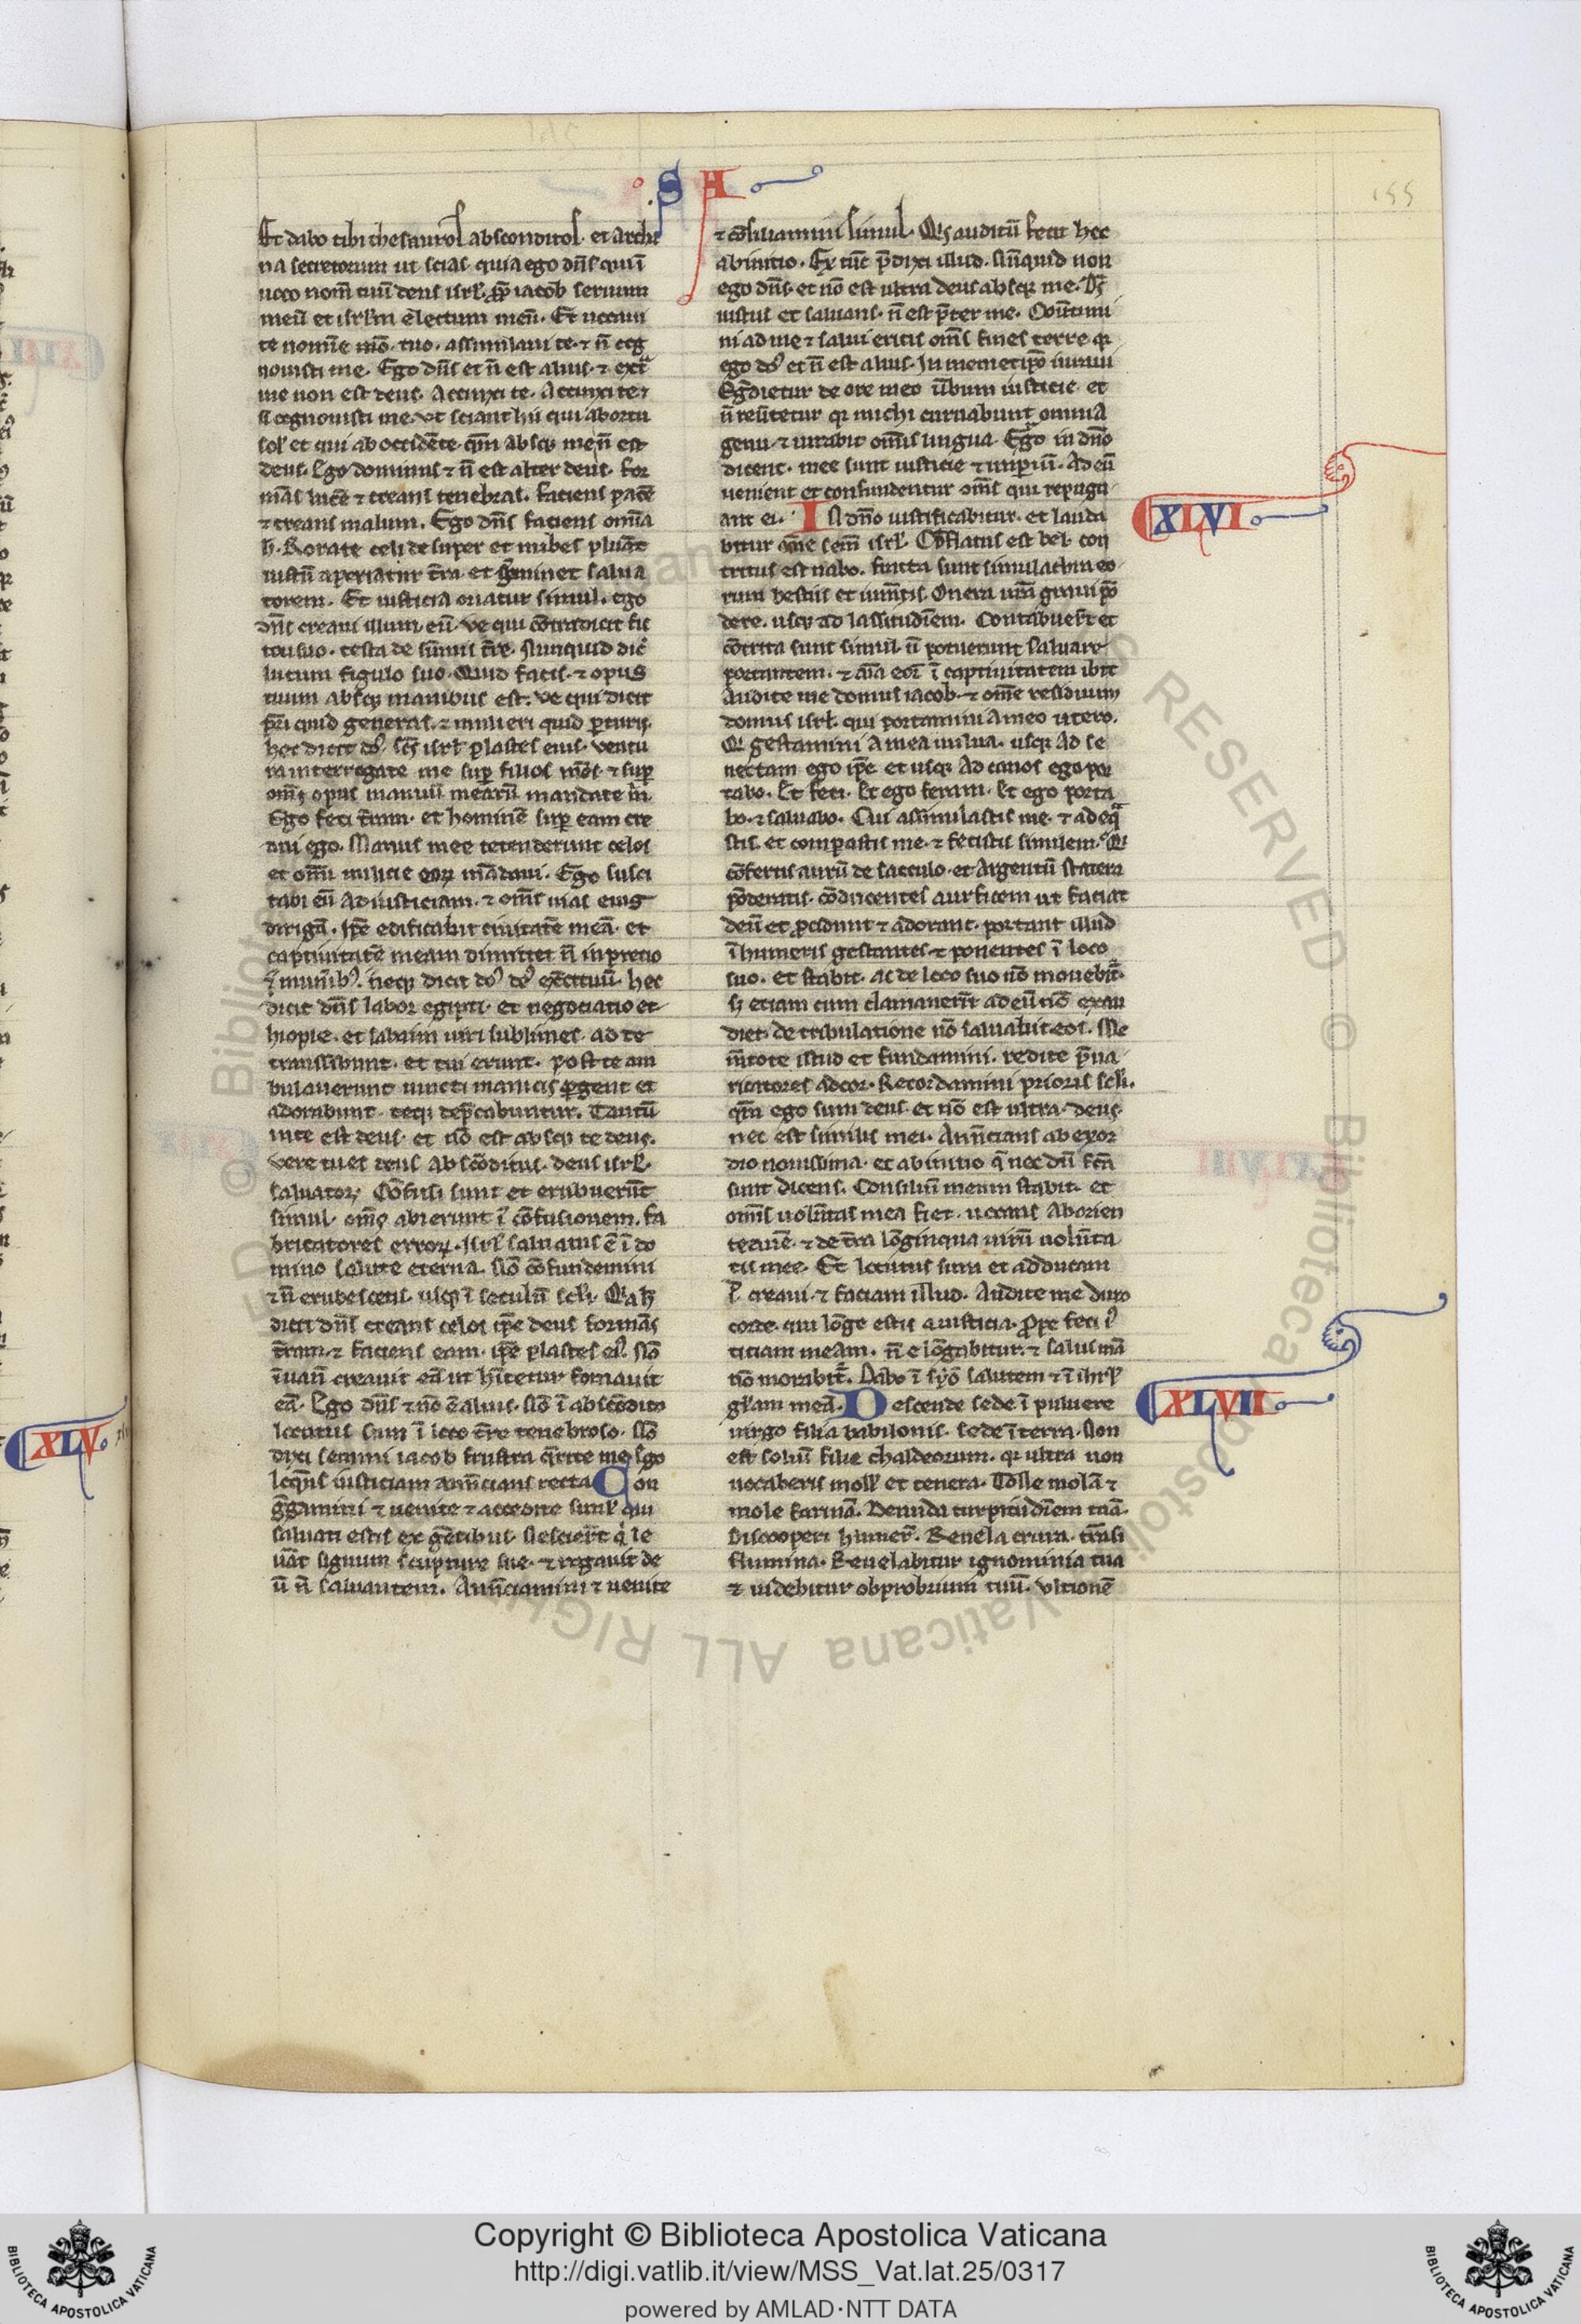 S A
155
Et dabo tibi thesauros absconditos. et archa
na secretorum ut scias quia ego dñs qui
uoco nom̄ tuū deus isrl̄. ꝓp̄ iacob seruum
meū et isrl̄m electum meū. Et uocaui
te nomīe mō. tuo. assimilaui te. ⁊ n̄ cog
nouisti me. Ego dñs et n̄ est alius. ⁊ ext̄
me non est deus. Accinxi te. Accinxi te ⁊
n̄ cognouisti me. ut sciant hii qui ab ortu
sol̄ et qui ab occidēte. qm̄ absqꝫ me n̄ est
deus. Ego dominus ⁊ n̄ est alter deus. for
mās lucē ⁊ creans tenebras. faciens pacē
⁊ creans malum. Ego dñs faciens om̄ia
h̄. Rorate celi desuper et nubes pluāt
iustū aperiatur t̄ra et gm̄inet salua
torem. Et iusticia oriatur simul. ego
dñs creaui illum eū. ve qui cōtradicit fic
tori suo. testa de samiis t̄re. Nunquid dic̄
lutum figulo suo. Quid facis. ⁊ opus
tuum absqꝫ manibus est. ve qui dicit
pr̄i quid generas. ⁊ mulieri quid ꝑturis.
hec dicit dñs. sc̄s isrl̄ plastes eius. ventu
ra interrogate me suꝑ filios m̄os ⁊ suꝑ
om̄s opus manuū mearū mandate m̄.
Ego feci t̄ram. et hominē suꝑ eam cre
aui ego. Manus mee tetenderunt celos
et om̄i milicie eoꝝ mādaui. Ego susci
taui eū ad iusticiam. ⁊ om̄s uias eius
dirigā. ip̄e edificabit ciuitatē meā. et
captiuitatē meam dimittet n̄ in precio
⁊ munibꝫ. neqꝫ dicit dñs ds̄ ex̄cituū. hec
dicit dñs labor egipti. et negociatio et
hiopie. et sabaim uiri sublimes. ad te
transibunt. et tui erunt. post te am
bulauerunt uincti manicis ꝑgent et
adorabunt. teqꝫ dep̄cabuntur. Tantū
inte est deus. et nō est absqꝫ te deus.
vere tu es deus absc̄oditus. deus isrl̄.
saluator. Cōfusi sunt et erubuerūt
simul. om̄s abierunt ī cōfusionem. fa
bricatores erroꝝ. Isrl̄ saluatus ē ī do
mino salute eterna. Nō cōfundemini
⁊ n̄ erubescens. usqꝫ ī seculū scl̄i. Q̄a h̄
dicit dñs creans celos ip̄e deus formās
t̄ram. ⁊ faciens eam. ip̄e plastes eiꝰ. Nō
ī uanū creauit eā ut hītetur formauit
eā. Ego dñs ⁊ nō ē alius. Nō ī absc̄odito
locutus sum ī loco t̄re tenebroso. Nō
dixi semini iacob frustra q̄rite me. ego
loq̄ns iusticiam ann̄cians recta Con
g̅gamini ⁊ uenite ⁊ accedite simł qui
saluati estis ex gētibus. Nescier̄t q̇ le
uāt signum sculpture sue. ⁊ rogauit de
ū n̄ saluantem. Ann̄ciamini ⁊ uenite
⁊ cōsiliamini simul. Qis auditū fecit hec
abinitio. Ex tūc p̄dixi illud. Nūquid non
ego dñs. et nō est ultra deus absqꝫ me. Ds̄
iustus et saluans. n̄ est p̄ter me. Cōūtimi
ni ad me ⁊ salui eritis om̄s fines terre qꝛ
ego ds̄ et n̄ est alius. In memetip̄o iuraui
Eg̅dietur de ore meo ūbum iusticie. et
n̄ reūtetur qꝛ michi curuabunt̄ omnia
genu. ⁊ iurabit om̄is lingua. Ergo in dn̄o
dicent. mee sunt iusticie ⁊ imꝑiū. Ad eū
uenient et confundentur om̄s qui repugn
ant ei. IN dn̄o iustificabitur. et lauda
bitur om̄e sem̄ isrl̄. Cōflatus est bel. con
tritus est nabo. facta sunt simulachra eo
rum bestiis et iumētis. Onera ur̄a graui pō
dere. usqꝫ ad lassitudīem. Contabuer̄t et
cōtrita sunt simul. n̄ potuerunt saluare
portantem. ⁊ aīa eoꝝ ī captiuitatem ibit
Audite me domus iacob. ⁊ om̄e residuum
domus isrl̄. qui portamini a meo utero.
Qi gestamini a mea uulua. usqꝫ ad se
nectam ego ip̄e et usqꝫ ad canos ego por
tabo. Et feci. Et ego feram. Et ego porta
bo. ⁊ saluabo. Cui assimulastis me. ⁊ adeq̄
stis. et comꝑastis me. ⁊ fecistis similem. Qi
cōfertis aurū de sacculo. et Argentū statera
pōderatis. cōducentes aurficem ut faciat
deū et ꝓcidunt ⁊ adorant. portant illud
ī humeris gestantes. ⁊ ponentes ī loco
suo. et stabit. ac de loco suo nō mouebit̄.
sꝫ etiam cum clamauerīt ad eū nō exau
diet. de tribulatione nō saluabit eos. Me
m̄tote istud et fundamini. redite p̄ua
ricatores ad cor. Recordamini prioris scl̄i.
qm̄ ego sum deus. et nō est ultra. deus.
nec est similis mei. Ann̄cians ab exor
dio nouissima. et ab initio q̄ nec dū fc̄a
sunt dicens. Consiliū meum stabit. et
om̄s uolūtas mea fiet. uocans Aborien
te auē. ⁊ de t̄ra lōginqua uirū uolūta
tis mee. Et locutus sum et adducam
l̄ creaui. ⁊ faciam illud. Audite me duro
corde. qui lōge estis a iusticia. ꝓpe feci iꝰ
ticiam meam. n̄ elōgabitur. ⁊ salus mā
nō morabit̄. Dabo ī syō salutem ⁊ ī ihrl̄
gl̄am meā. Descende sede ī puluere
uirgo filia babilonis. sede ī terra. Non
est soliū filie chaldeorum. qꝛ ultra non
uocaberis moll̄ et tenera. Tolle molā ⁊
mole farinā. Denuda turpitudīem tuā.
Discooperi humer̄. Reuela crura. trāsi
flumina. Reuelabitur ignominia tua
⁊ uidebitur obprobrium tuū. Vltionē
XLV
XLVI
XLVII
© Biblioteca Apostolica Vaticana ALL RIGHTS RESERVED
Copyright © Biblioteca Apostolica Vaticana
http://digi.vatlib.it/view/MSS_Vat.lat.25/0317
powered by AMLAD·NTT DATA
BIBLIOTECA APOSTOLICA VATICANA
BIBLIOTECA APOSTOLICA VATICANA